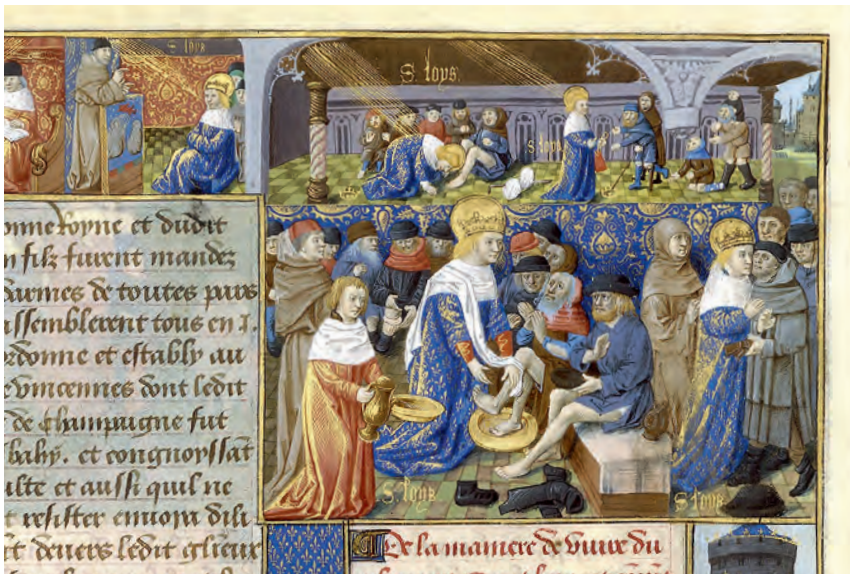 S. loys
S. loys
S. loys
onne royne et dudit
n filz furent mandez
darmes de toutes pars
assemblerent tous en i.
ordonne et estably au
e vincennes dont ledit
de champaigne fut
bahy. et congnoyssāt
ulte et aussi quil ne
t resister enuoya dili
t deuers ledit glieux
S. loys
S. loys
De la maniere de viure du